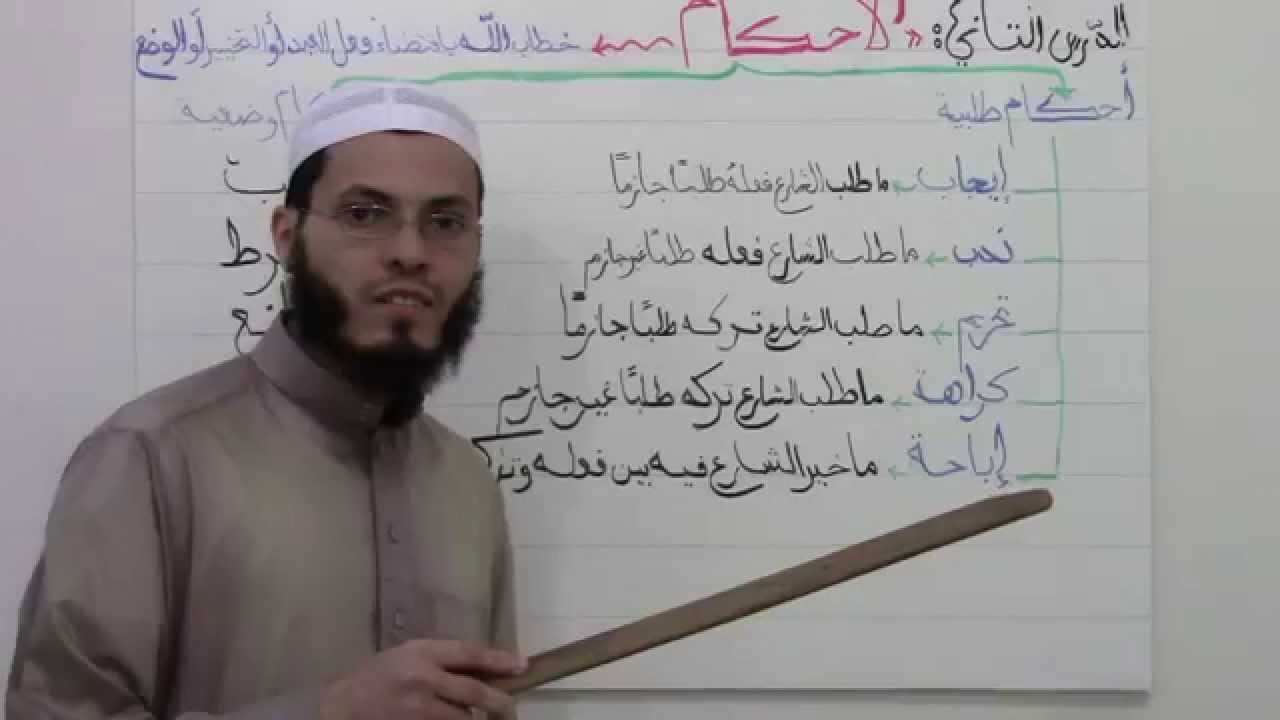 الدرس الثاني: «الأحكام» خطاب الله باقتضاء فعل العبد أو التخيير أو الوضع
أحكام طلبية
وضعية
إيجاب ← ما طلب الشارع فعله طلبًا جازمًا
ندب ← ما طلب الشارع فعله طلبًا غير جازم
تحريم ← ما طلب الشارع تركه طلبًا جازمًا
كراهة ← ما طلب الشارع تركه طلبًا غير جازم
إباحة ← ما خير الشارع فيه بين فعله